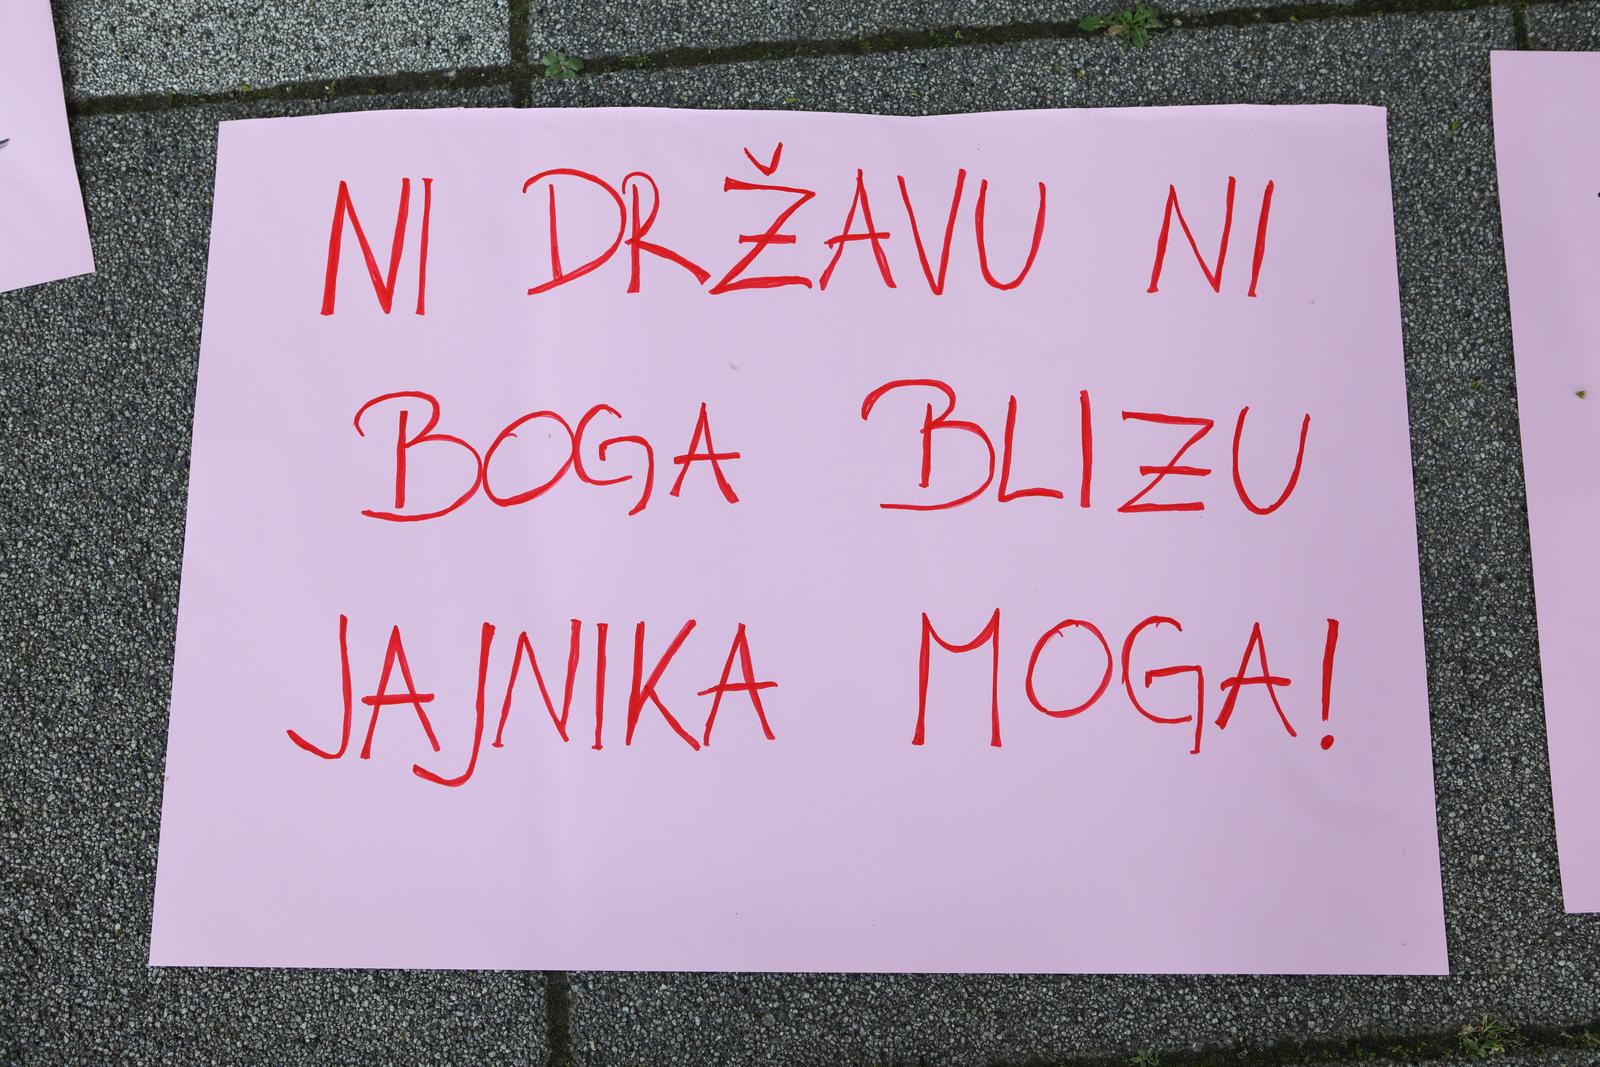 NI DRŽAVU NI
BOGA BLIZU
JAJNIKA MOGA!